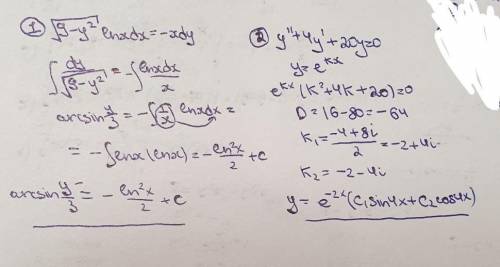 ① √(9-y²) lnxdx=-xdy
∫ dy/√(9-y²) = -∫ lnxdx/x
arcsin y/3 = -∫ (1/x) lnxdx =
= -∫ lnx(lnx) = -ln²x/2 + c
arcsin y/3 = - ln²x/2 + c
② y''+4y'+20y=0
y=e^(kx)
e^(kx) (k²+4k+20)=0
D=16-80=-64
k₁= (-4+8i)/2 = -2+4i
k₂ = -2-4i
y= e^(-2x) (C₁sin4x+C₂cos4x)